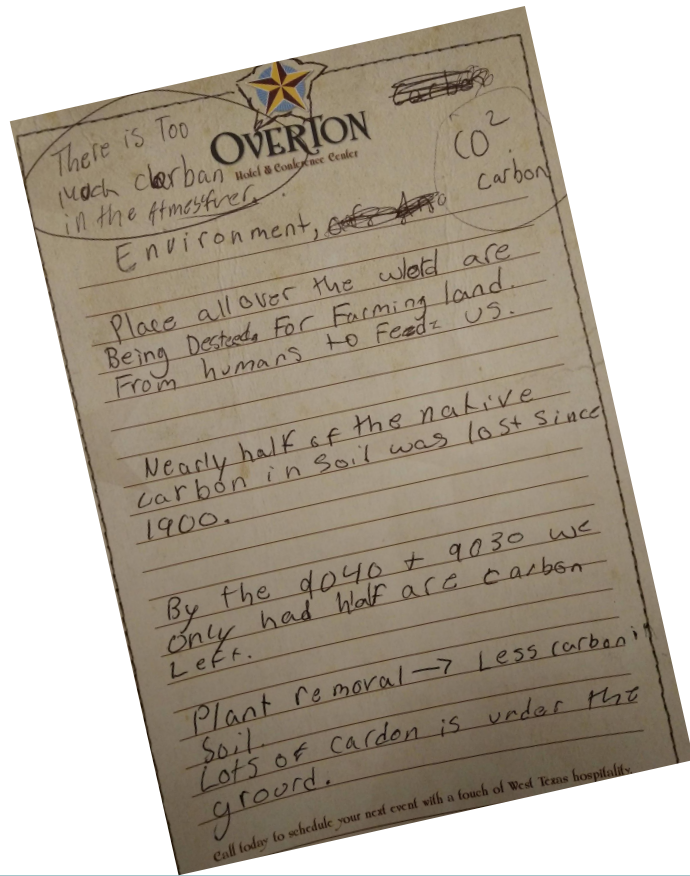 There is Too
Much carban
in the Atmesfirer.
OVERTON
Hotel & Conference Center
CO²
carbon
Environment,
Place all over the world are
Being Desteed, For Farming land.
From humans to Feed US.
Nearly half of the native
carbon in Soil was lost since
1900.
By the 9040 + 9030 we
only had half are carbon
Left.
Plant removal → Less carbon in
Soil.
Lots of cardon is under the
ground.
Call today to schedule your next event with a touch of West Texas hospitality.